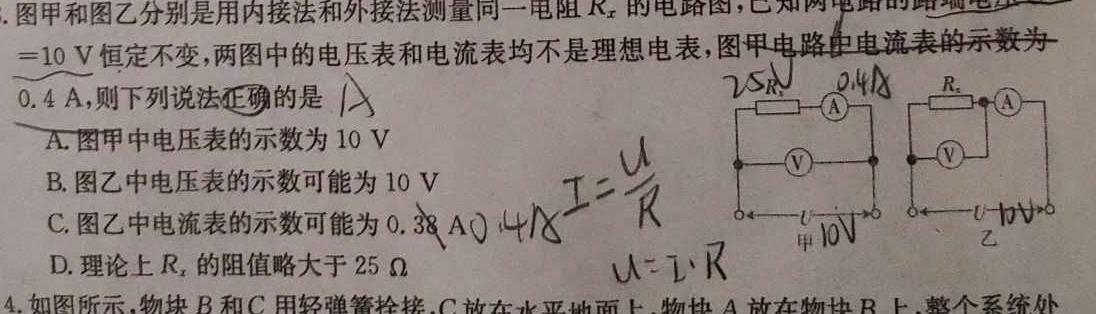 图甲和图乙分别是用内接法和外接法测量同一电阻 Rₓ 的电路图,已知两电路的路端电
=10 V 恒定不变,两图中的电压表和电流表均不是理想电表,图甲电路中电流表的示数为
0.4 A,则下列说法正确的是 A
A. 图甲中电压表的示数为 10 V
B. 图乙中电压表的示数可能为 10 V
C. 图乙中电流表的示数可能为 0.38 A 0.4A
D. 理论上 Rₓ 的阻值略大于 25 Ω
I=U/R
U=I·R
25 0.4A
A
V
U
甲 10V
Rₓ
A
V
U 10V
乙
4. 如图所示,物块 B 和 C 用轻弹簧拴接,C 放在水平地面上,物块 A 放在物块 B 上,整个系统处